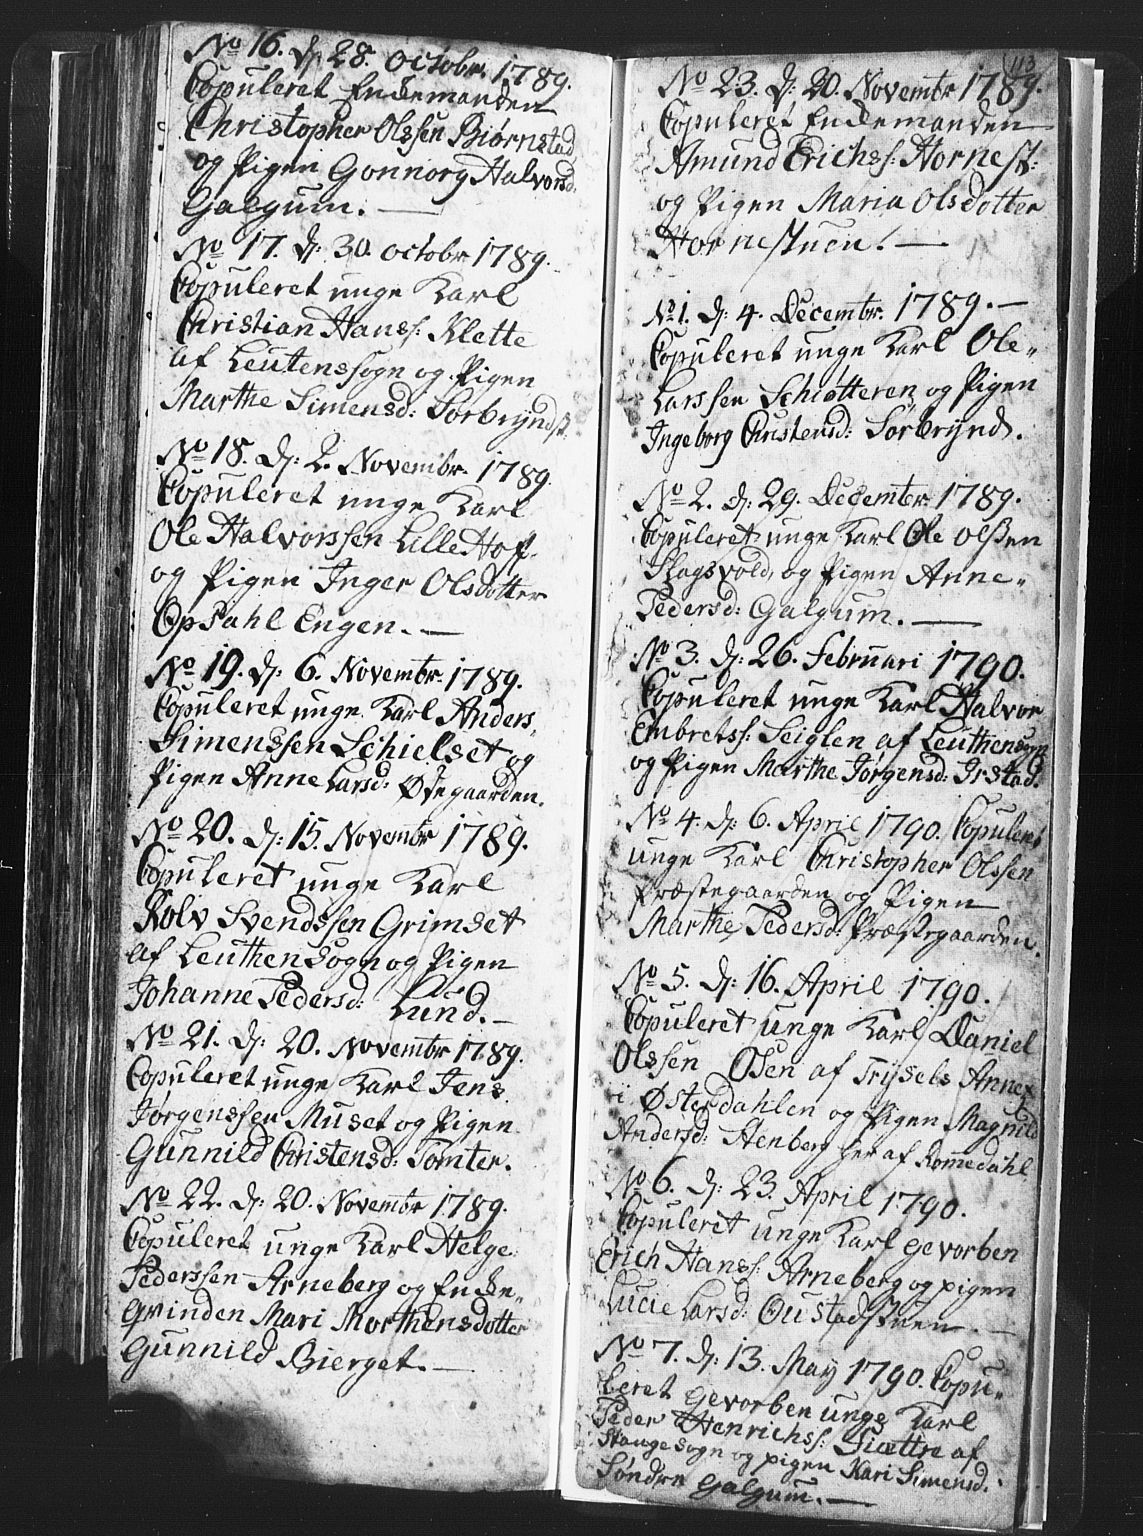 No 16. d: 28. Octobr. 1789.
Copuleret Enckemanden
Christopher Olssen Biørnstad
og Pigen Gonnorg Halvorsd.
Galgum. —
No 17. d: 30. octobr 1789.
Copuleret unge Karl
Christian Hanss: Klette
af Leutenssogn og Pigen
Marthe Simensd: Sørbrÿndst:
No 18. d: 2. Novembr. 1789.
Copuleret unge Karl
Ole Halvorssen Lille Hof
og Pigen Inger Olsdotter
Opsahl Engen. —
No 19. d: 6. Novembr. 1789.
Copuleret unge Karl Anders
Simenssen Schielset og
Pigen Anne Larsd: Ødegaarden.
No 20. d: 15. Novembr 1789.
Copuleret unge Karl
Rolv Svendssen Grimset
af Leuthensogn og Pigen
Johanne Pedersd: Lund. —
No 21. d: 20. Novembr 1789.
Copuleret unge Karl Jens
Jørgenssen Muset og Pigen
Gunnild Christensd: Tomter.
No 22. d: 20. Novembr 1789.
Copuleret unge Karl Helge
Pederssen Arneberg og Encke-
Qvinden Mari Morthensdotter
Gunnild Bierget. —
113
No 23. d: 20. Novembr 1789.
Copuleret Enckemanden
Amund Erichss: Hornest:
og Pigen Maria Olsdotter
Hornestuen. —
No 1. d: 4. Decembr. 1789. —
Copuleret unge Karl Ole
Larssen Schiøtteren og Pigen
Ingeborg Christensd: Sørbrÿnd.
No 2. d: 29. Decembr. 1789.
Copuleret unge Karl Ole Olssen
Slagsvold, og Pigen Anne
Pedersd: Galgum. —
No 3. d: 26. Februari 1790.
Copuleret unge Karl Halvor
Embretss: Seiglen af Leuthensogn
og Pigen Marthe Jørgensd: Irstad.
No 4. d: 6. April 1790. Copuleret
unge Karl Christopher Olssen
Præstegaarden og Pigen
Marthe Pedersd: Præstegaarden.
No 5. d: 16. April 1790.
Copuleret unge Karl Daniel
Olssen Osen af Trÿsels Annex
i Østerdahlen og Pigen Magnild
Andersd: Stenberg her af Rommedahl
No 6. d: 23. April 1790.
Copuleret unge Karl gevorben
Erich Hanss: Arneberg og pigen
Lucie Larsd: Oustadstuen. —
No 7. d: 13. May 1790. Copu-
leret gevorben unge Karl
Peder Henrichss: Siættre af
Stange sogn og pigen Kari Simensd.
Søndre Galgum. —